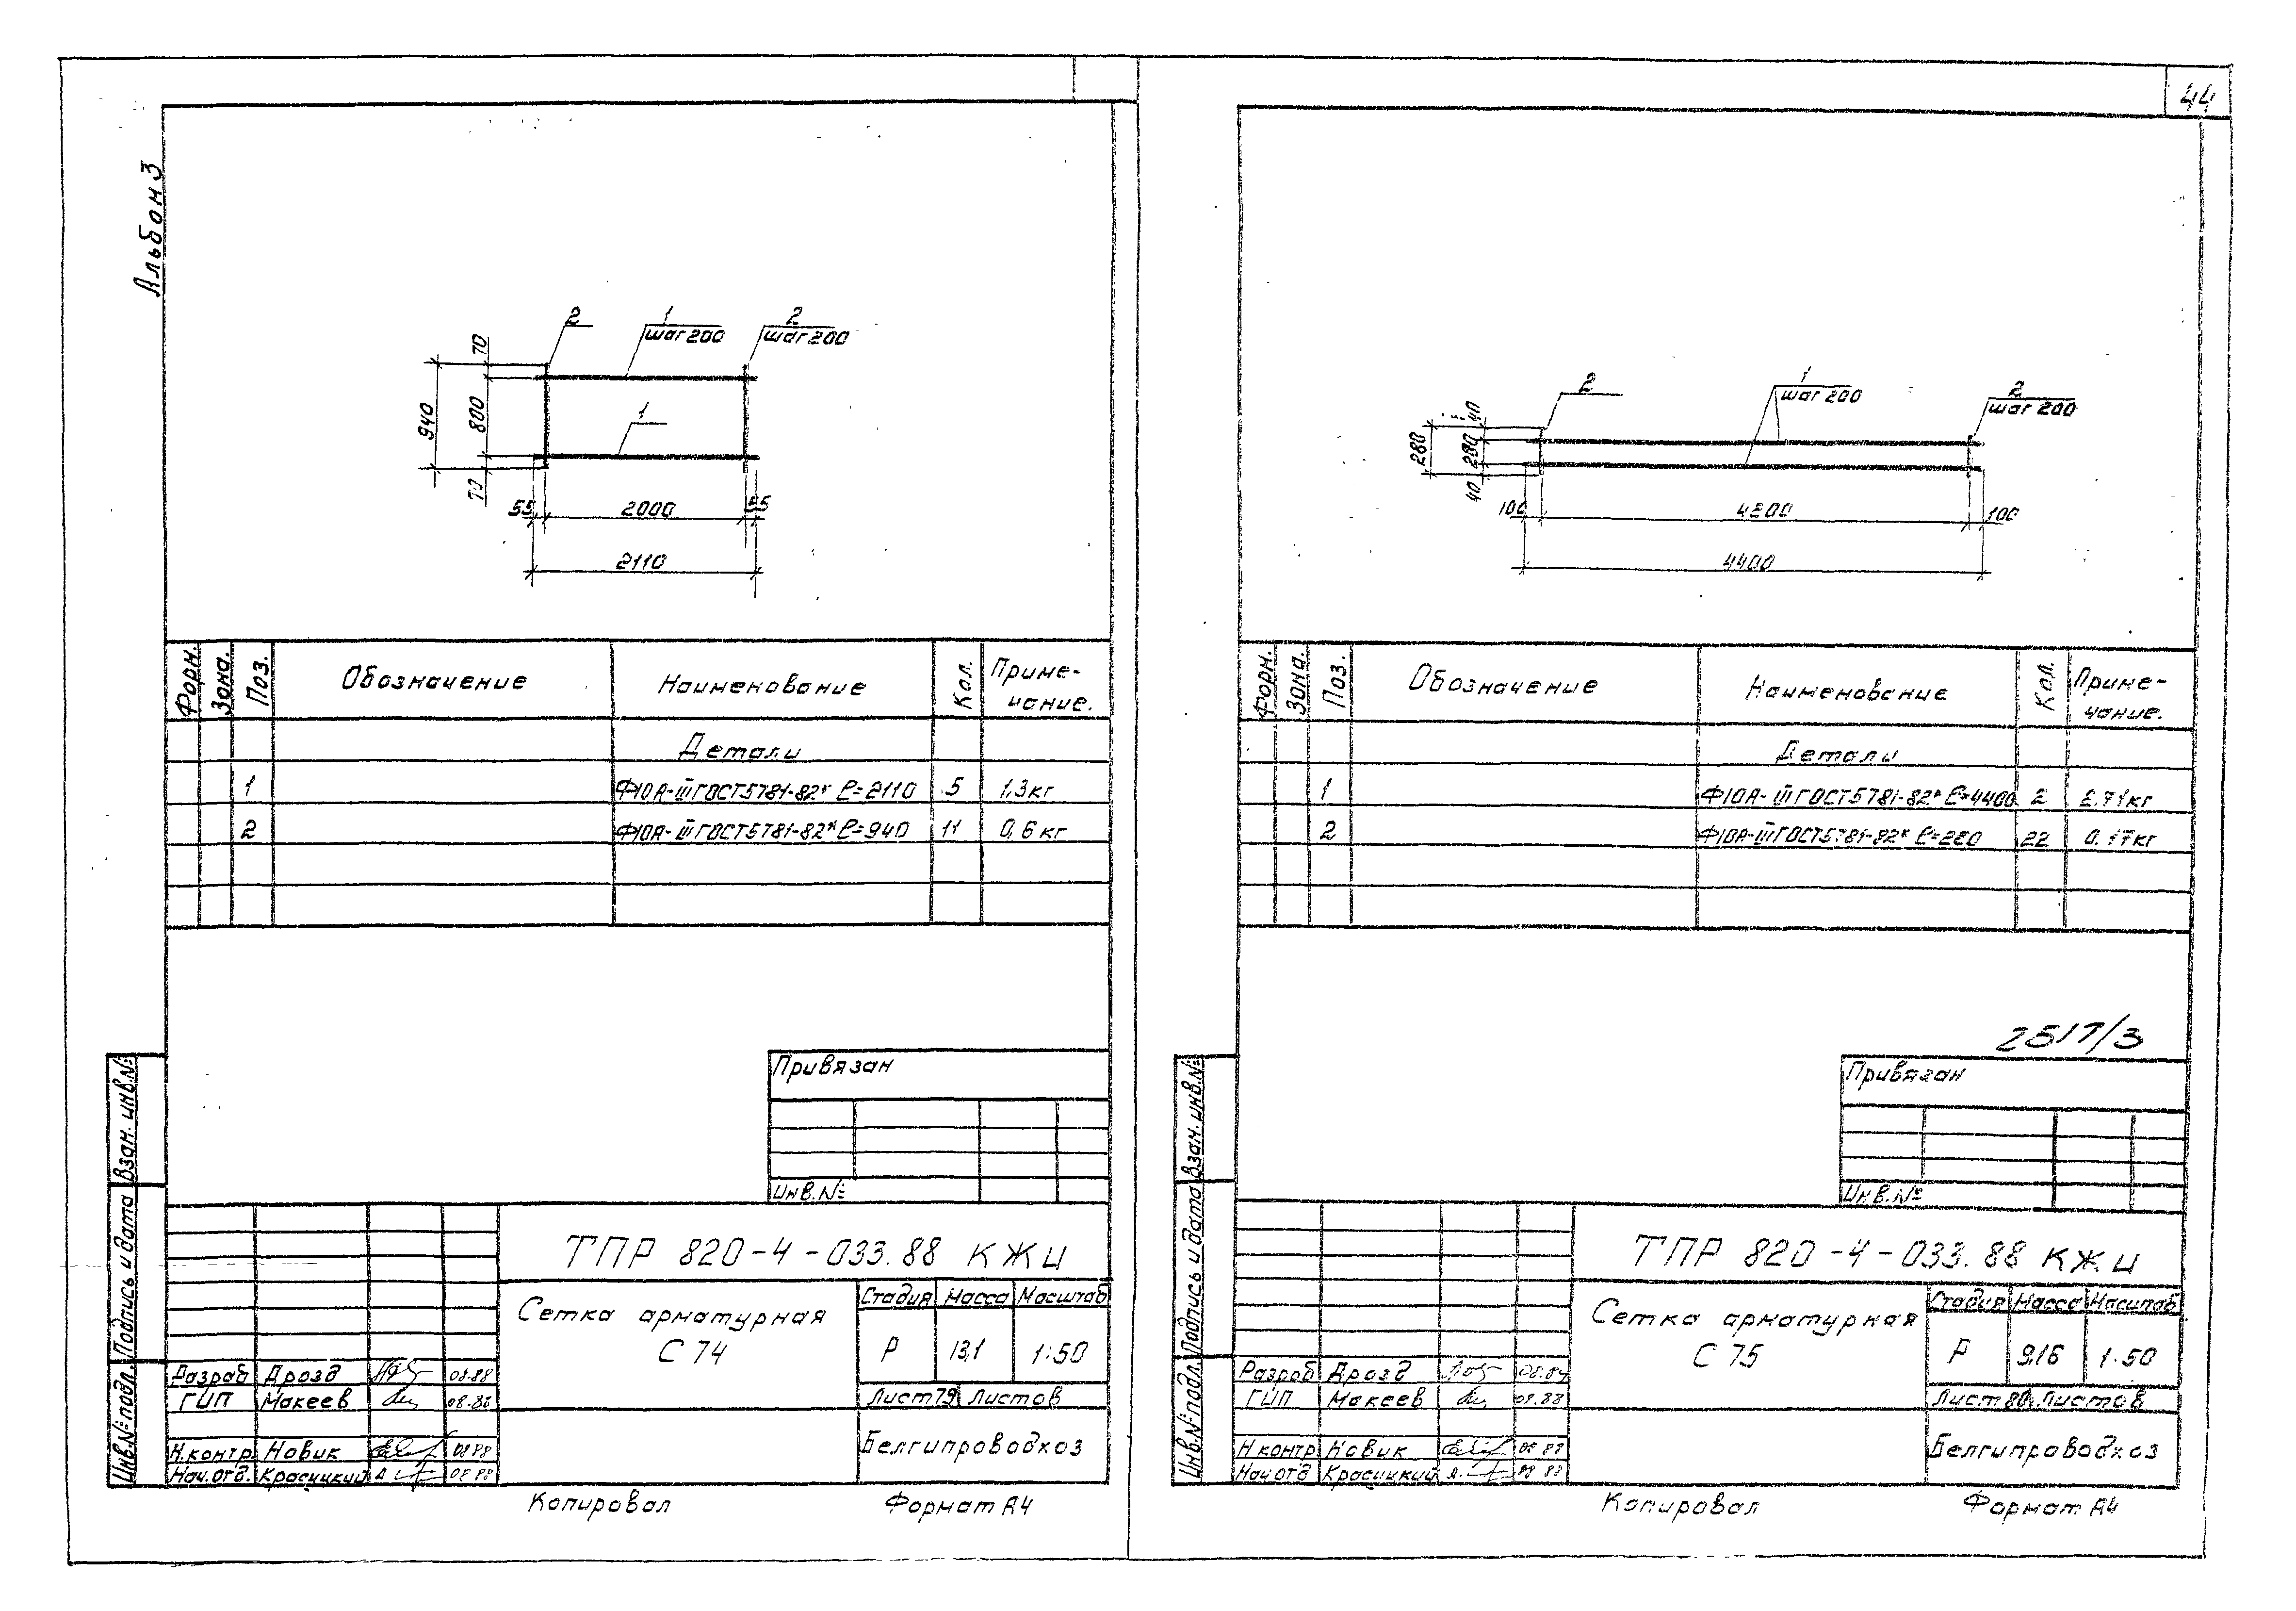 44
Альбом 3
2
1
шаг 200
2
шаг 200
70
800
70
940
1
55
2000
55
2110
Форм.
Зона.
Поз.
Обозначение
Наименование
Кол.
Приме-
чание.
Детали
1 Ф10А-III ГОСТ 5781-82* ℓ=2110 5 1,3кг
2 Ф10А-III ГОСТ 5781-82* ℓ=940 11 0,6кг
Привязан
Инв.№
ТПР 820-4-033.88 КЖИ
Сетка арматурная
С 74
Стадия Масса Масштаб
Р 13,1 1:50
Лист 79 Листов
Белгипроводхоз
Разраб Дрозд 08.88
ГИП Макеев 08.88
Н.контр Новик 08.88
Нач.отд. Красуцкий 08.88
Взам. инв.№
Подпись и дата
Инв.№ подл.
Копировал
Формат А4
2
1
шаг 200
2
шаг 200
40
200
40
280
100
4200
100
4400
Форм.
Зона.
Поз.
Обозначение
Наименование
Кол.
Приме-
чание.
Детали
1 Ф10А-III ГОСТ 5781-82* ℓ=4400 2 2.71кг
2 Ф10А-III ГОСТ 5781-82* ℓ=280 22 0.17кг
2517/3
Привязан
Инв.№
ТПР 820-4-033.88 КЖИ
Сетка арматурная
С 75
Стадия Масса Масштаб
Р 9,16 1:50
Лист 80 Листов
Белгипроводхоз
Разраб Дрозд
ГИП Макеев 08.88
Н.контр Новик
Нач.отд Красуцкий
Взам. инв.№
Подпись и дата
Инв.№ подл.
Копировал
Формат А4